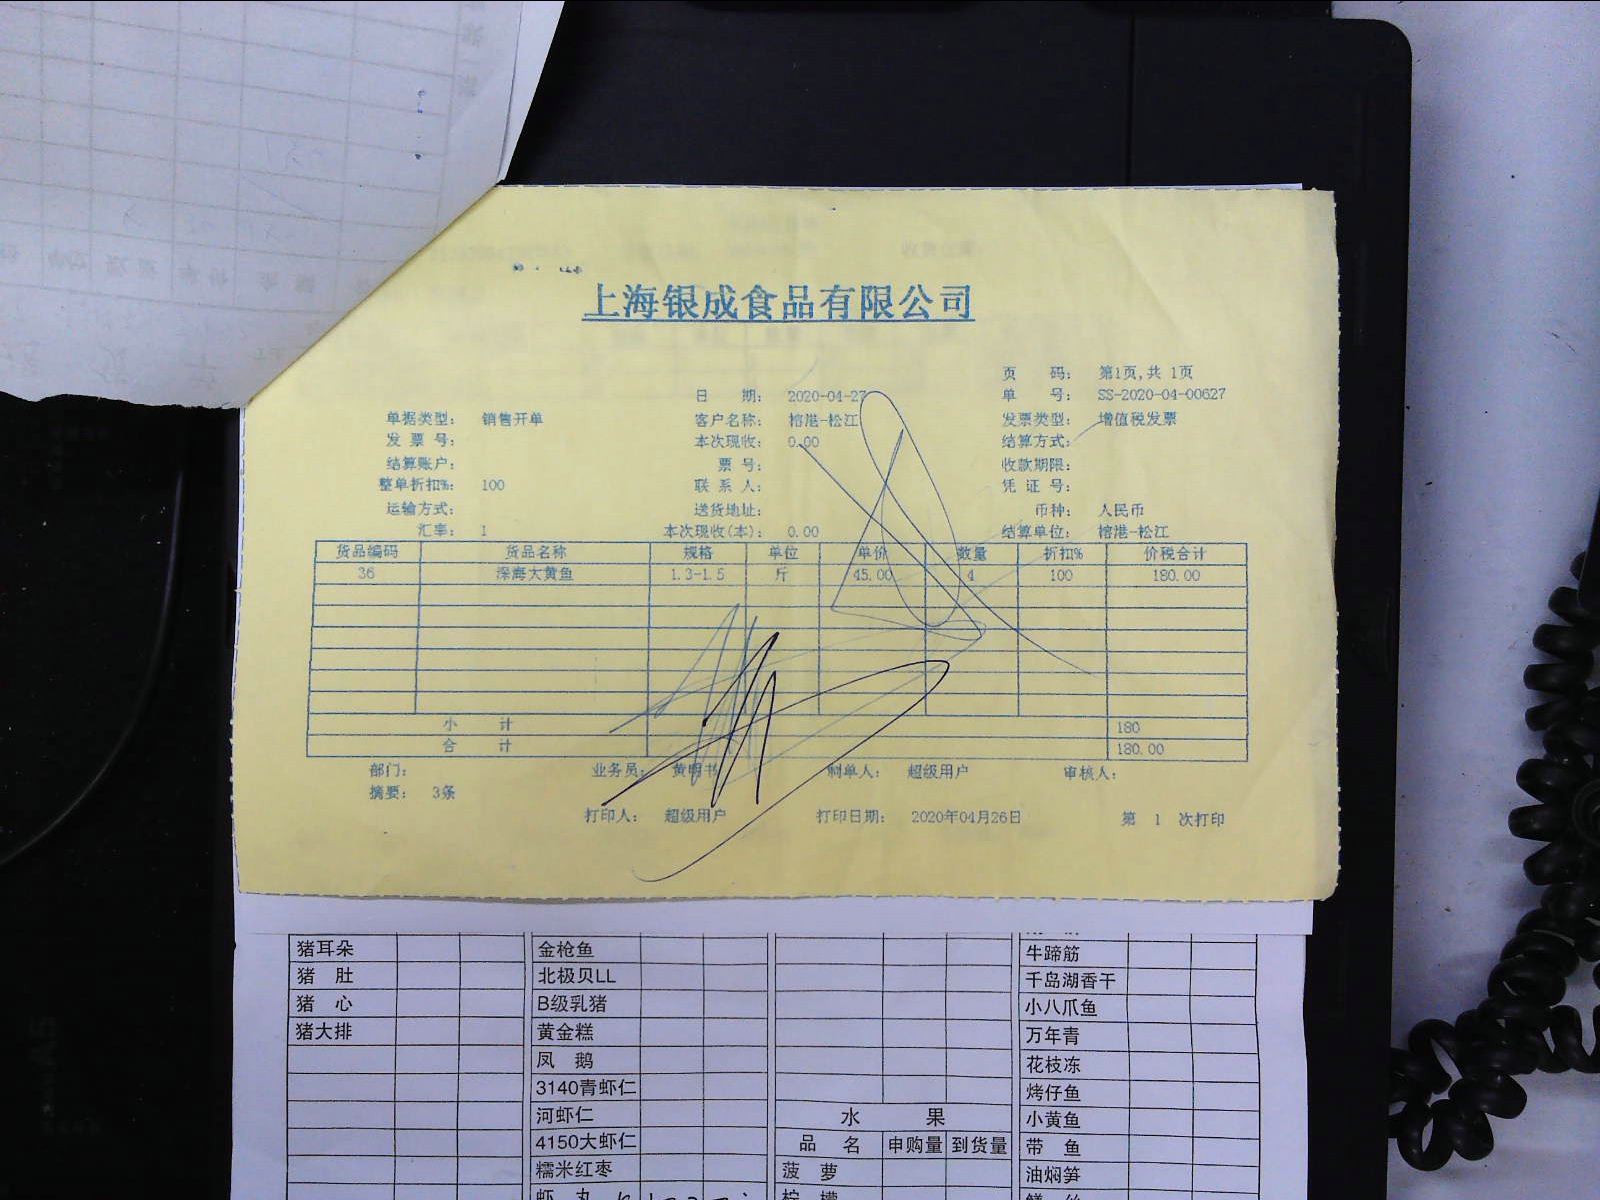 上海银成食品有限公司
页 码: 第1页,共 1页
日 期: 2020-04-27 单 号: SS-2020-04-00627
单据类型: 销售开单 客户名称: 榕港-松江 发票类型: 增值税发票
发 票 号: 本次现收: 0.00 结算方式:
结算账户: 票 号: 收款期限:
整单折扣%: 100 联 系 人: 凭 证 号:
运输方式: 送货地址: 币种: 人民币
汇率: 1 本次现收(本): 0.00 结算单位: 榕港-松江
货品编码 货品名称 规格 单位 单价 数量 折扣% 价税合计
36 深海大黄鱼 1.3-1.5 斤 45.00 4 100 180.00
小 计 180
合 计 180.00
部门: 业务员: 黄明书 制单人: 超级用户 审核人:
摘要: 3条
打印人: 超级用户 打印日期: 2020年04月26日 第 1 次打印
猪耳朵 金枪鱼 牛蹄筋
猪 肚 北极贝LL 千岛湖香干
猪 心 B级乳猪 小八爪鱼
猪大排 黄金糕 万年青
凤 鹅 花枝冻
3140青虾仁 烤仔鱼
河虾仁 水 果 小黄鱼
4150大虾仁 品 名 申购量 到货量 带 鱼
糯米红枣 菠 萝 油焖笋
虾 丸 柠 檬